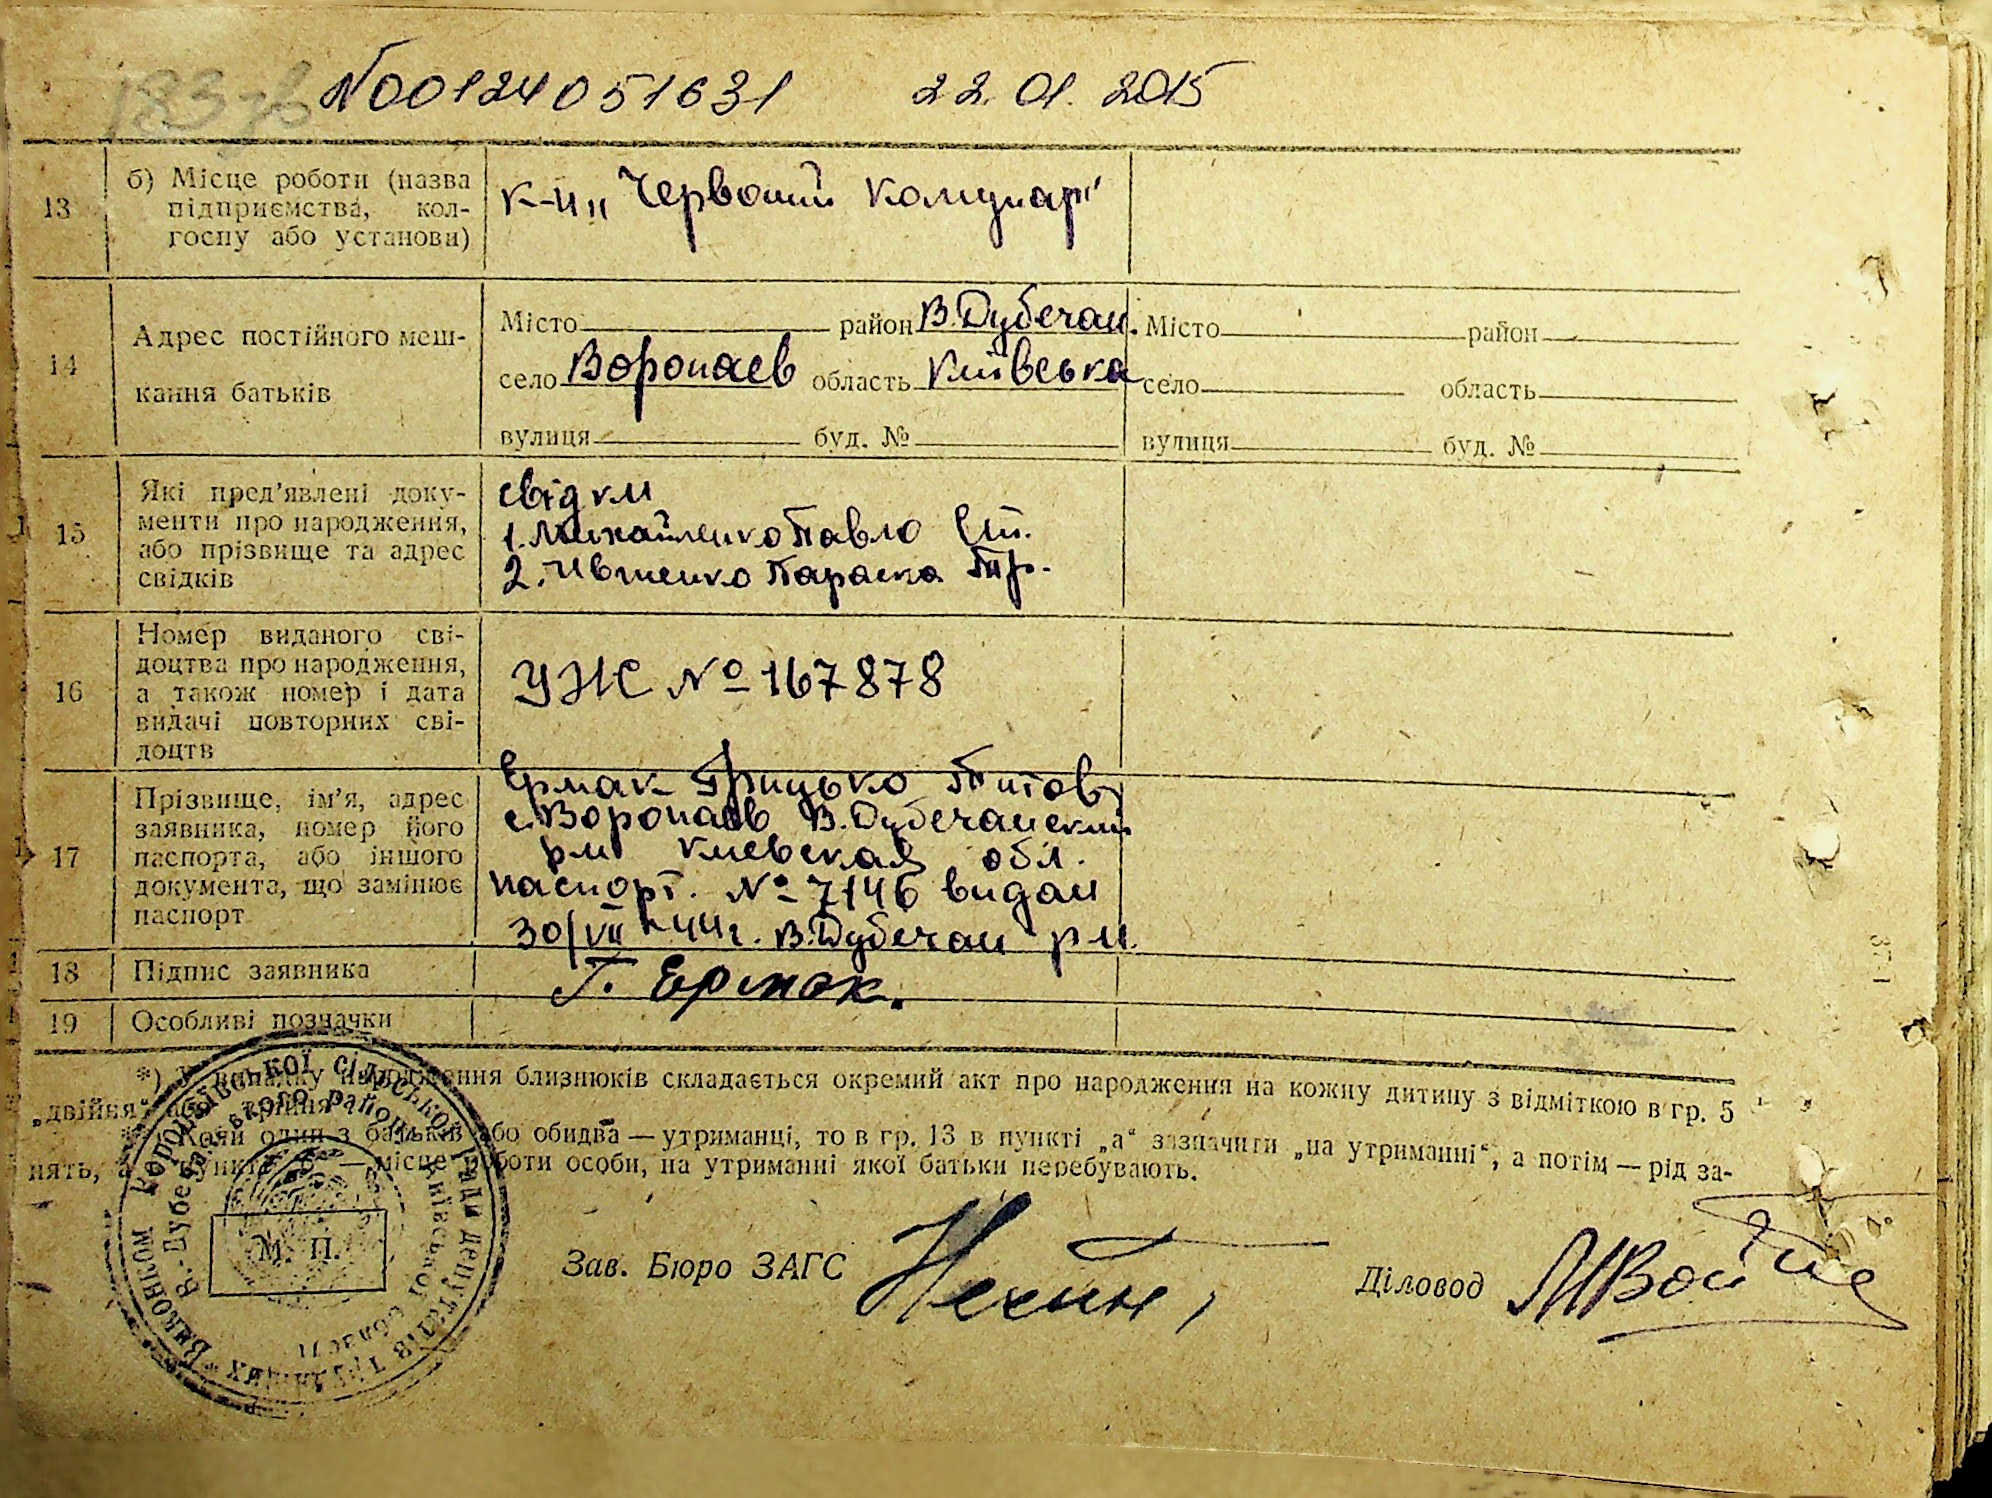 183 зв №00124051631 22.01.2015
13 б) Місце роботи (назва
підприємства, кол-
госпу або установи)
к-п „Червоний Комунар"
14 Адрес постійного меш-
кання батьків
Місто район В.Дубечан.
село Воропаєв область Київська
вулиця буд. №
Місто район
село область
вулиця буд. №
15 Які пред'явлені доку-
менти про народження,
або прізвище та адрес
свідків
свідки
1. Михайленко Павло
2. Ивченко Параска Пр.
16 Номер виданого сві-
доцтва про народження,
а також номер і дата
видачі повторних сві-
доцтв
УЖС № 167878
17 Прізвище, ім'я, адрес
заявника, номер його
паспорта, або іншого
документа, що замінює
паспорт
Ермак Грицько Титов
с. Воропаєв В.Дубечанский
рн Киевская обл.
паспорт. № 7146 видан
30/VII-44г. В.Дубечан рн.
18 Підпис заявника
Г. Ермак.
19 Особливі позначки
*) У випадку народження близнюків складається окремий акт про народження на кожну дитину з відміткою в гр. 5
„двійня" або „трійня".
Коли один з батьків або обидва — утриманці, то в гр. 13 в пункті „а" зазначити „на утриманні", а потім — рід за-
нять, а в пункті „б" — місце роботи особи, на утриманні якої батьки перебувають.
Виконком сільської Ради депутатів трудящих
В.-Дубечанського району Київської області
М. П.
Зав. Бюро ЗАГС
Діловод